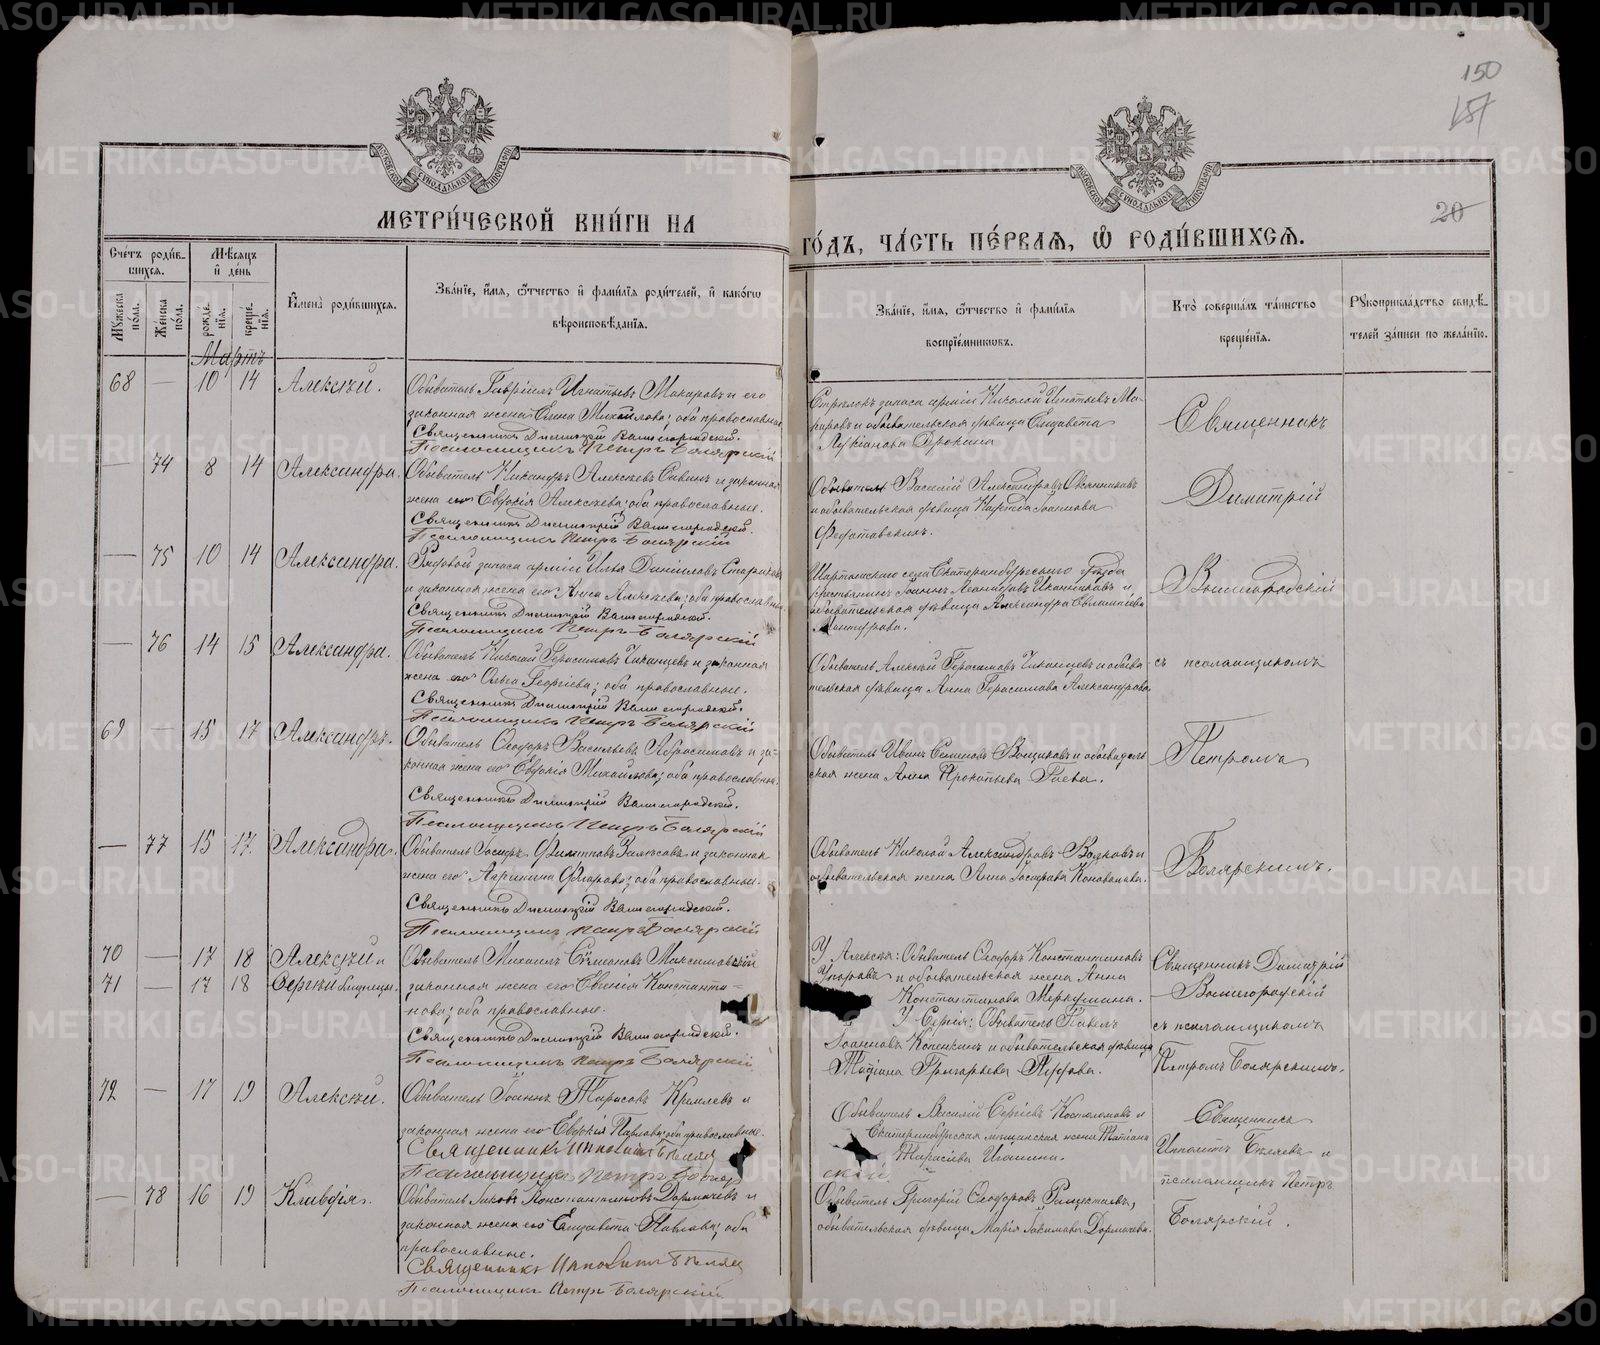 150
157
20
МЕТРИ́ЧЕСКОЙ КНИ́ГИ НА
ГО́ДЪ, ЧА́СТЬ ПЕ́РВАѦ, Ѽ РОДИ́ВШИХСѦ.
Сче́тъ роди́в-
шихсѧ.
Мꙋ́жеска по́ла.
Же́нска по́ла.
Мѣ́сѧцъ и҆ де́нь
рожде́-нїѧ.
креще́-нїѧ.
И҆мена̀ роди́вшихсѧ.
Зва́нїе, и҆́мѧ, ѻ҆́тчество и҆ фами́лїѧ роди́телей, и҆ како́гѡ
вѣроисповѣ́данїѧ.
Зва́нїе, и҆́мѧ, ѻ҆́тчество и҆ фами́лїѧ
воспрїе́мникѡвъ.
Кто̀ соверша́лъ та́инство
креще́нїѧ.
Рꙋкоприкла́дство свидѣ́-
телей за́писи по жела́нїю.
Мартъ
68 — 10 14 Алексѣй.
Обыватель Гавріилъ Игнатьевъ Макаровъ и его
законная жена Елена Михайлова; оба православные
Священникъ Димитрій Вышегородскій.
Псаломщикъ ПетръБолярскій
Стрѣлокъ запаса арміи Николай Игнатьевъ Ма-
каровъ и обывательская дѣвица Елизавета
Лукіанова Дрокина
Священникъ
— 74 8 14 Александра.
Обыватель Никандръ Алексѣевъ Савинъ и законная
жена его Евдокія Алексѣева; оба православные.
Священникъ Димитрій Вышегородскій.
Псаломщикъ Петръ Болярскій
Обыватель Василій Александровъ Овсянниковъ
и обывательская дѣвица Іоаннова
Федотовскихъ.
Димитрій
— 75 10 14 Александра.
Рядовой запаса арміи Илья Даніиловъ
и законная жена его Анна Алексѣева; оба православные
Священникъ Димитрій Вышегородскій.
Псаломщикъ Петръ Болярскій
Шарташскаго села Екатеринбургскаго уѣзда
крестьянинъ Іоаннъ Леонидовъ и
обывательская дѣвица Александра
Мантурова.
Вышегородскій
— 76 14 15 Александра.
Обыватель Николай Герасимовъ Чиканцевъ и законная
жена его Ольга Георгіева; оба православные.
Священникъ Димитрій Вышегородскій.
Псаломщикъ Петръ Болярскій
Обыватель Алексѣй Герасимовъ Чиканцевъ и обыва-
тельская дѣвица Анна Герасимова Александрова
съ псаломщикомъ
69 — 15 17 Александръ.
Обыватель Ѳеодоръ Васильевъ Абросимовъ и за-
конная жена его Евдокія Михайлова; оба православные.
Священникъ Димитрій Вышегородскій.
Псаломщикъ Петръ Болярскій
Обыватель Иванъ Семеновъ и обыватель-
ская жена Анна Прокопьева Гаева.
Петромъ
— 77 15 17. Александра.
Обыватель Іосифъ Филипповъ Залѣсовъ и законная
жена его Агрипина Фларова; оба православные.
Священникъ Димитрій Вышегородскій.
Псаломщикъ Петръ Болярскій
Обыватель Николай Александровъ Волковъ и
обывательская жена Анна Іосифова Коновалова.
Болярскимъ.
70 — 17 18 Алексѣй и
71 — 17 18 Сергѣй близнецы.
Обыватель Михаилъ Симоновъ Максимовскій
законная жена его Евгенія Константи-
нова; оба православные.
Священникъ Димитрій Вышегородскій.
Псаломщикъ Петръ Болярскій
У Алексѣя: Обыватель Ѳеодоръ Константиновъ
Упоровъ и обывательская жена Анна
Константинова Меркушина.
У Сергія: Обыватель Павелъ
Іоанновъ Копенкинъ и обывательская дѣвица
Татіана Григорьева
Священникъ Димитрій
Вышегородскій
съ псаломщикомъ
Петромъ Болярскимъ.
72 — 17 19 Алексѣй.
Обыватель Іоаннъ Тарасовъ Кремлевъ и
законная жена его Евдокія Павлова; оба православные.
Священникъ Ипполитъ Бѣляев
Псаломщикъ Петръ Боляр
скій
Обыватель Василій Сергіевъ Костоломовъ и
Екатеринбургская мѣщанская жена Татіана
Тарасіева
Священникъ
Ипполитъ Бѣляевъ и
псаломщикъ Петръ
Болярскій.
— 78 16 19 Клавдія.
Обыватель Іаковъ Константиновъ Дормачевъ и
законная жена его Елизавета Павлова; оба
православные.
Священникъ Ипполитъ Бѣляев
Псаломщикъ Петръ Болярскій
Обыватель Григорій Ѳеодоровъ
обывательская дѣвица Марія Іакимова Дормачева.
METRIKI.GASO-URAL.RU